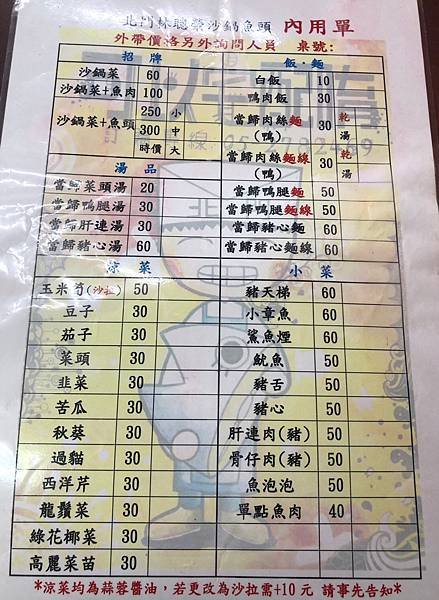 北門林聰榮沙鍋魚頭 內用單
外帶價格另外詢問人員 桌號:
招牌
沙鍋菜 60
沙鍋菜+魚肉 100
沙鍋菜+魚頭 250 小
300 中
時價 大
湯品
當歸菜頭湯 20
當歸鴨腿湯 30
當歸肝連湯 30
當歸豬心湯 60
涼菜
玉米筍(沙拉) 50
豆子 30
茄子 30
菜頭 30
韭菜 30
苦瓜 30
秋葵 30
過貓 30
西洋芹 30
龍鬚菜 30
綠花椰菜 30
高麗菜苗 30
飯·麵
白飯 10
鴨肉飯 30
當歸肉絲麵 (鴨) 30 乾 湯
當歸肉絲麵線 (鴨) 30 乾 湯
當歸鴨腿麵 50
當歸鴨腿麵線 50
當歸豬心麵 60
當歸豬心麵線 60
小菜
豬天梯 60
小章魚 60
鯊魚煙 60
魷魚 50
豬舌 50
豬心 50
肝連肉(豬) 50
骨仔肉(豬) 50
魚泡泡 50
單點魚肉 40
*涼菜均為蒜蓉醬油，若更改為沙拉需+10元 請事先告知*